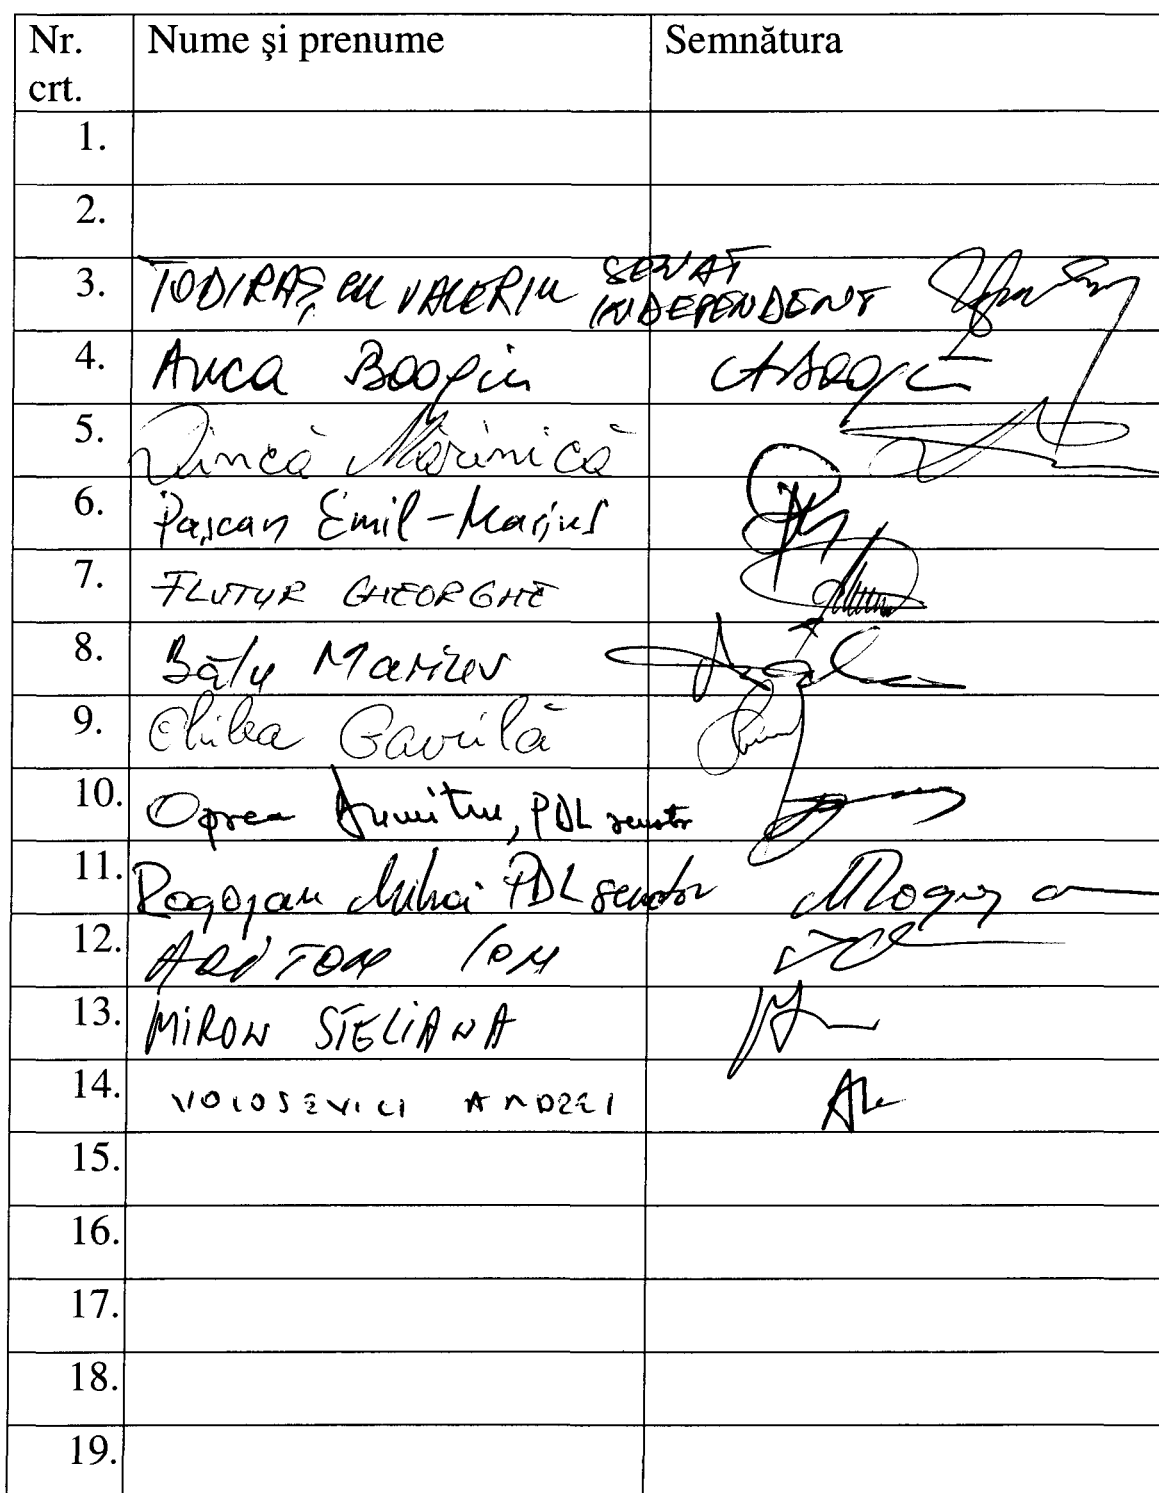 Nr. crt. Nume şi prenume Semnătura
1.
2.
3. TODIRAŞCU VALERIU SENAT INDEPENDENT
4. Anca Boagiu
5. Dincă Mărinică
6. Paşcan Emil-Marius
7. FLUTUR GHEORGHE
8. Bâlu Marius
9. Ghilea Găvrilă
10. Oprea Dumitru, PDL senator
11. Rogojan Mihai PDL senator
12. ARITON ION
13. MIRON STELIANA
14. VOLOSEVICI ANDREI
15.
16.
17.
18.
19.